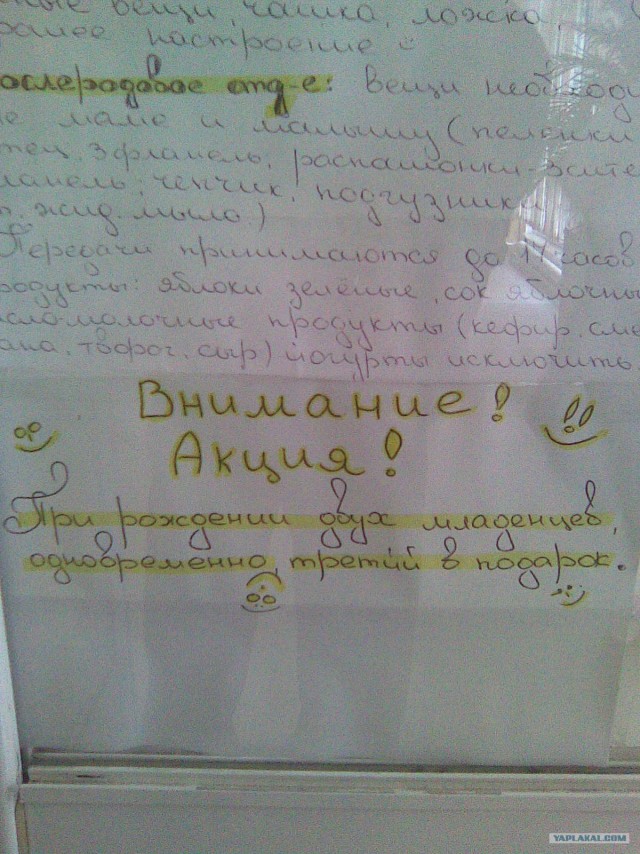 вещи, чашка, ложка,
настроение
ослеродовое отд-е: вещи необходи
е маме и малышу (пеленки
3 фланель, распашонки-
ланель, чепчик, подгузники
жид. мыло)
Передачи принимаются до 17 часов
родукты: яблоки зелёные, сок яблочны
исломолочные продукты (кефир, сме
ана, творог, сыр) йогурты исключить.
Внимание!
Акция!
При рождении двух младенцев,
одновременно, третий в подарок.
YAPLAKAL.COM